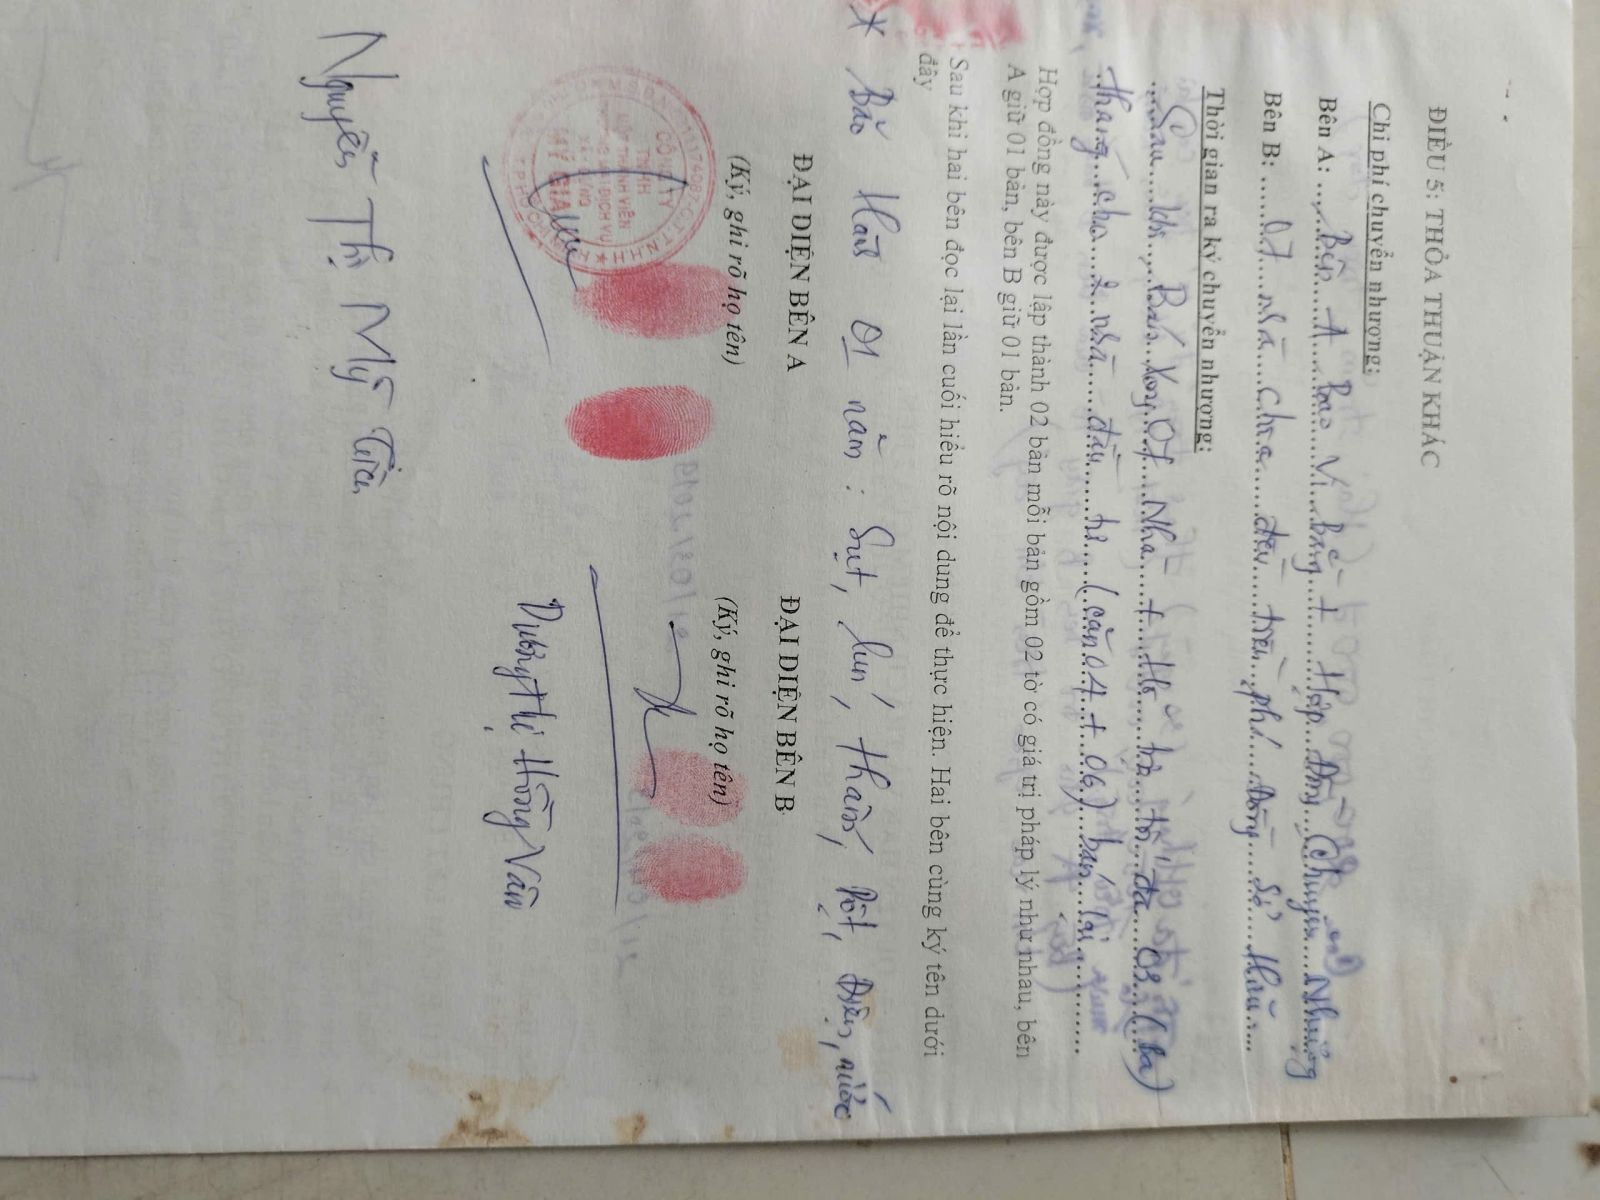 ĐIỀU 5: THỎA THUẬN KHÁC
Chi phí chuyển nhượng:
Bên A: Bên A bao vi bằng + Hợp đồng chuyển nhượng
Bên B: 07 nhà chia đều tiền phí đồng sở hữu
Thời gian ra ký chuyển nhượng:
Sau khi bán xong 07 nhà + tối đa 03 (ba)
tháng cho 2 nhà đầu (căn 04 + 06) bán lại
Hợp đồng này được lập thành 02 bản mỗi bản gồm 02 tờ có giá trị pháp lý như nhau, bên
A giữ 01 bản, bên B giữ 01 bản.
Sau khi hai bên đọc lại lần cuối hiểu rõ nội dung để thực hiện. Hai bên cùng ký tên dưới
đây
* Bảo Hành 01 năm: Sụt, lún, thấm, dột, điện, nước
ĐẠI DIỆN BÊN A
(Ký, ghi rõ họ tên)
ĐẠI DIỆN BÊN B
(Ký, ghi rõ họ tên)
CÔNG TY
TNHH
MỘT THÀNH VIÊN
DỊCH VỤ
MỸ GIA
Nguyễn Thị Mỹ Tiên
Dương Thị Hồng Vân